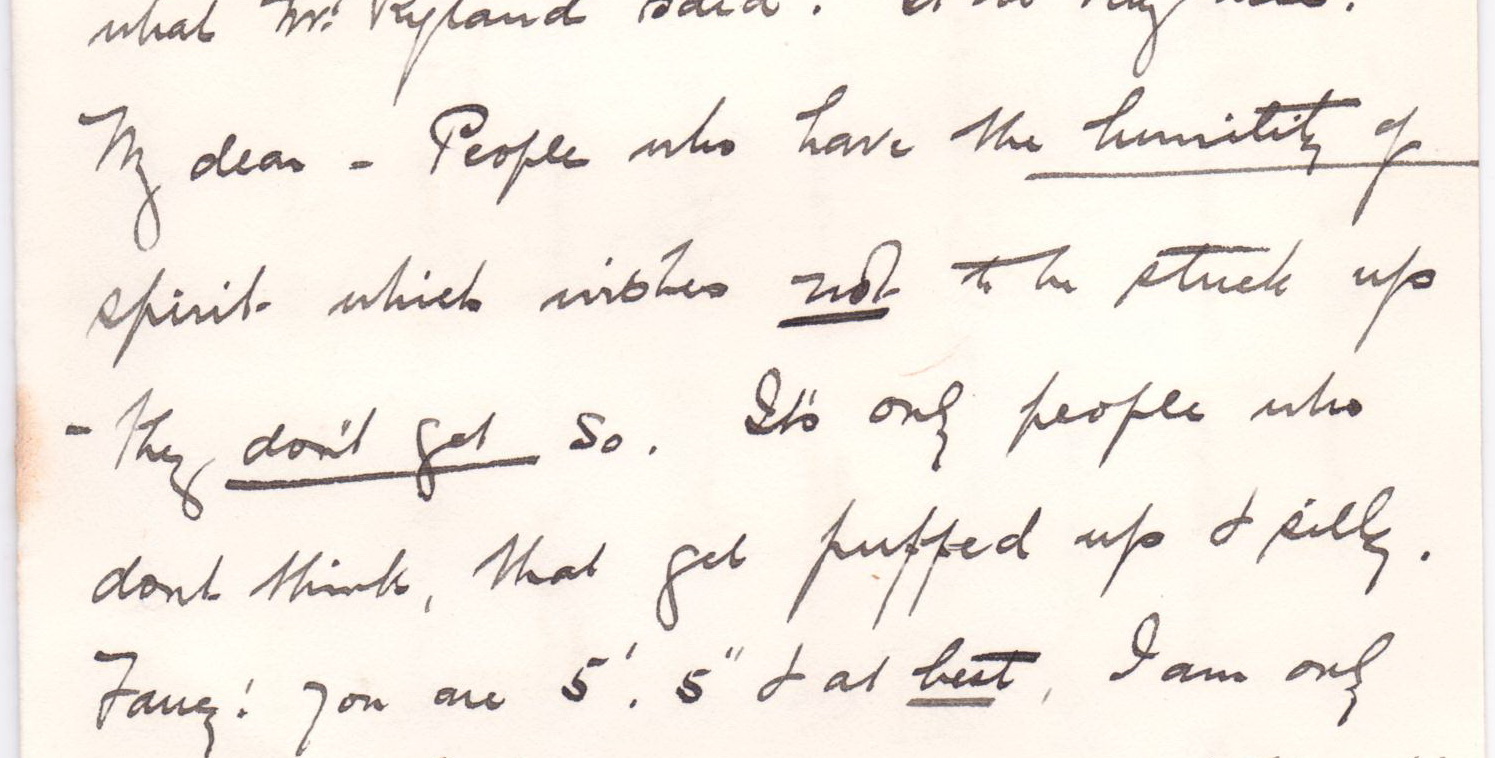 what Mr. Ryland said.
My dear - People who have the humility of
spirit which wishes not to be stuck up
- they don't get so. It's only people who
dont think, that get puffed up & silly.
Fancy! you are 5'. 5" & at best, I am only